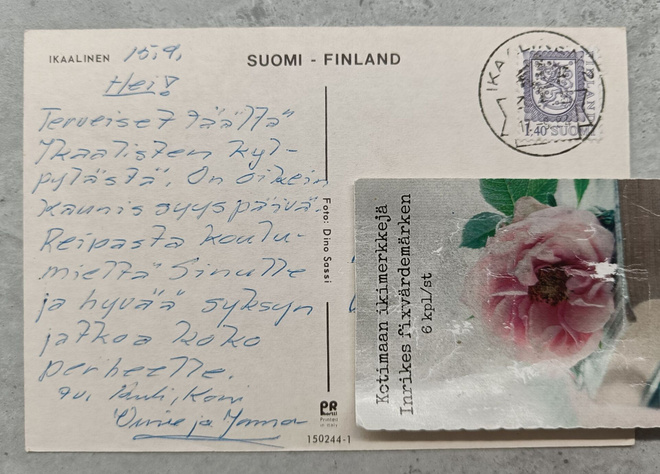 IKAALINEN 15.9.
SUOMI - FINLAND
Hei!
Terveiset täältä
Ikaalisten kyl-
pylästä. On oikein
kaunis syyspäivä.
Reipasta koulu-
mieltä Sinulle
ja hyvää syksyn
jatkoa koko
perheelle.
Pauli,
ja
Foto: Dino Sassi
PR
Printed
in Italy
150244-1
1·40 SUOMI
FINLAND
Kotimaan ikimerkkejä
Inrikes fixvärdemärken
6 kpl/st